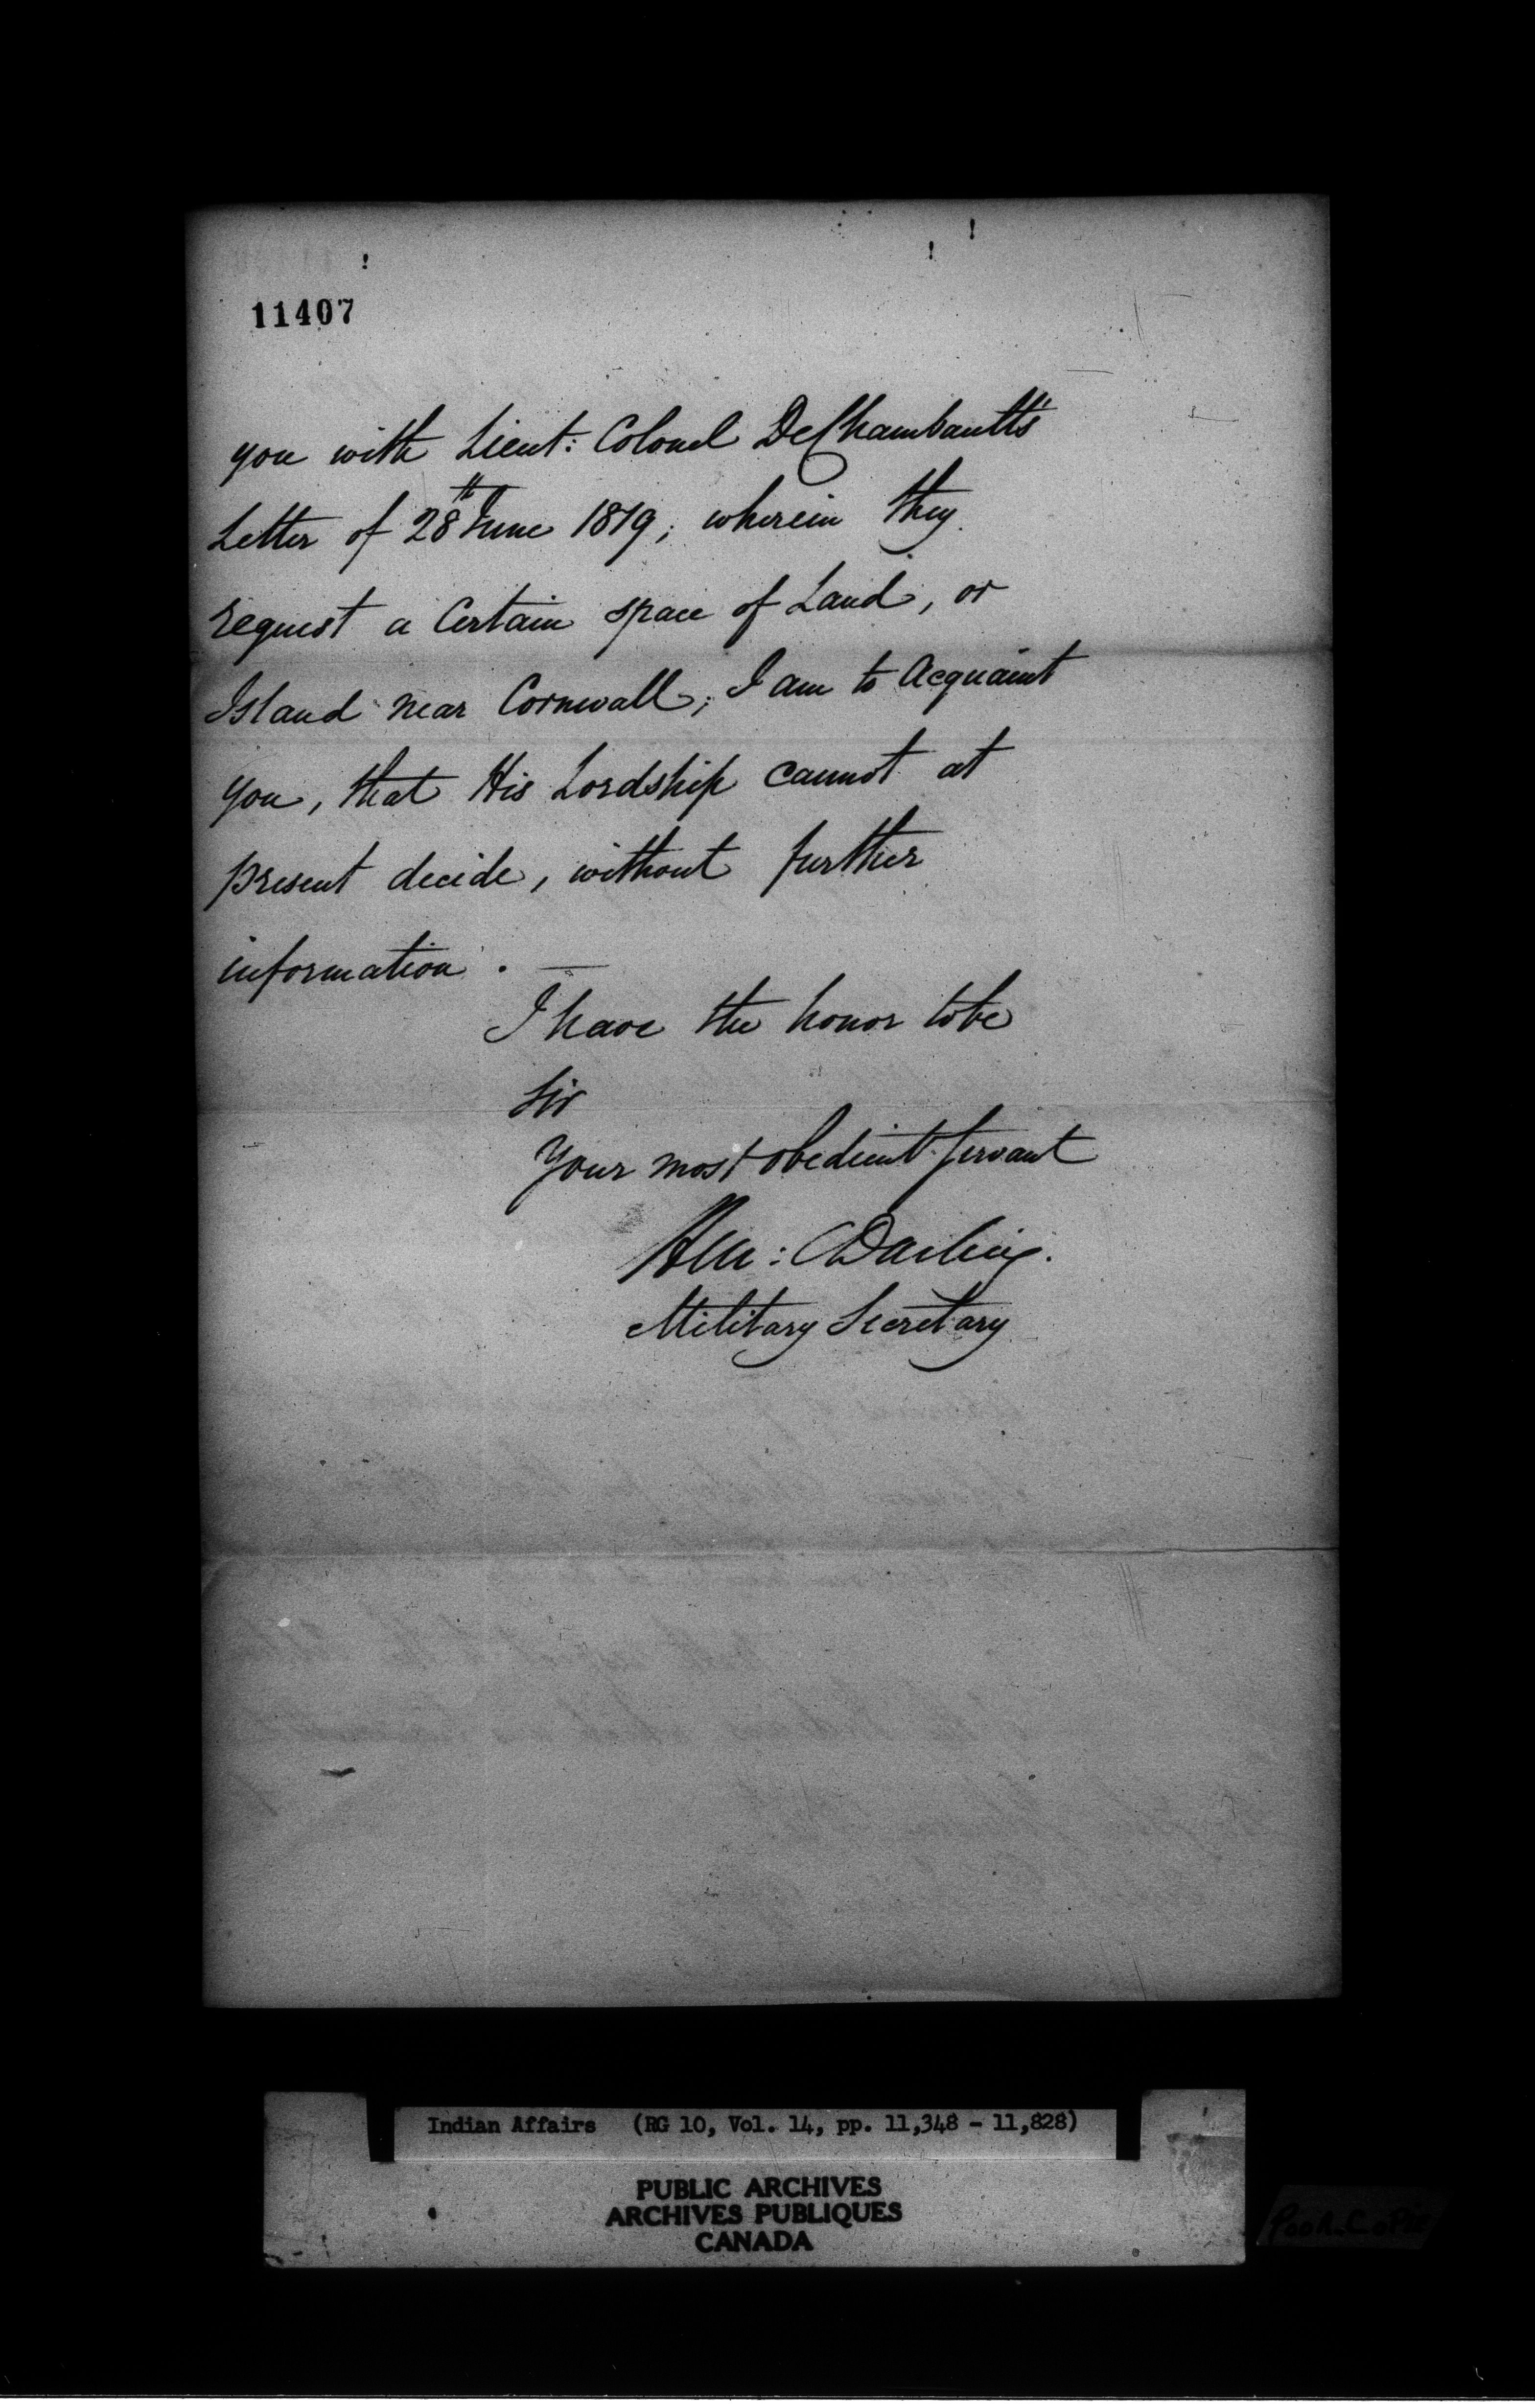 11407
you with Lieut: Colonel DeChambault's
Letter of 28th June 1819; wherein they
request a Certain space of Land, or
Island near Cornwall; I am to Acquaint
you, that His Lordship cannot at
present decide, without further
information. —
I have the honor to be
Sir
Your most obedient Servant
H C Darling.
Military Secretary
Indian Affairs (RG 10, Vol. 14, pp. 11,348 - 11,828)
PUBLIC ARCHIVES
ARCHIVES PUBLIQUES
CANADA
Poor Copie